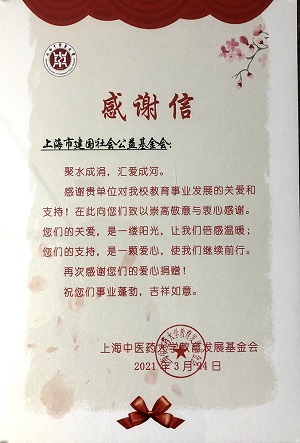 感谢信
上海市建国社会公益基金会:
聚水成涓,汇爱成河。
感谢贵单位对我校教育事业发展的关爱和
支持!在此向您们致以崇高敬意与衷心感谢。
您们的关爱,是一缕阳光,让我们倍感温暖;
您们的支持,是一颗爱心,使我们继续前行。
再次感谢您们的爱心捐赠!
祝您们事业蓬勃,吉祥如意。
上海中医药大学教育发展基金会
2021年3月24日